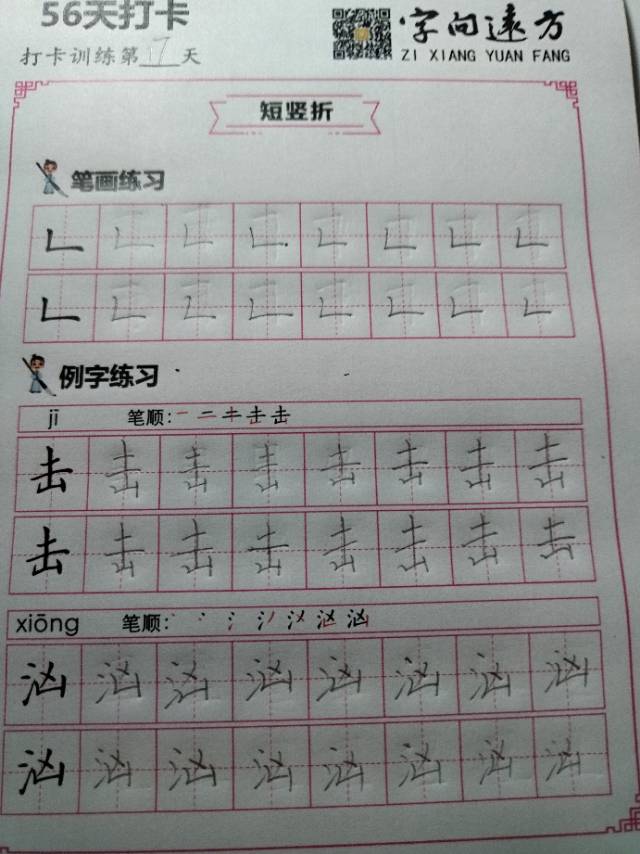 56天打卡
字向远方
打卡训练第17天
ZI XIANG YUAN FANG
短竖折
笔画练习
例字练习
jī 笔顺: 一 二 キ 击 击
击 击 击 击 击 击 击 击
击 击 击 击 击 击 击 击
xiōng 笔顺:
汹 汹 汹 汹 汹 汹 汹 汹
汹 汹 汹 汹 汹 汹 汹 汹